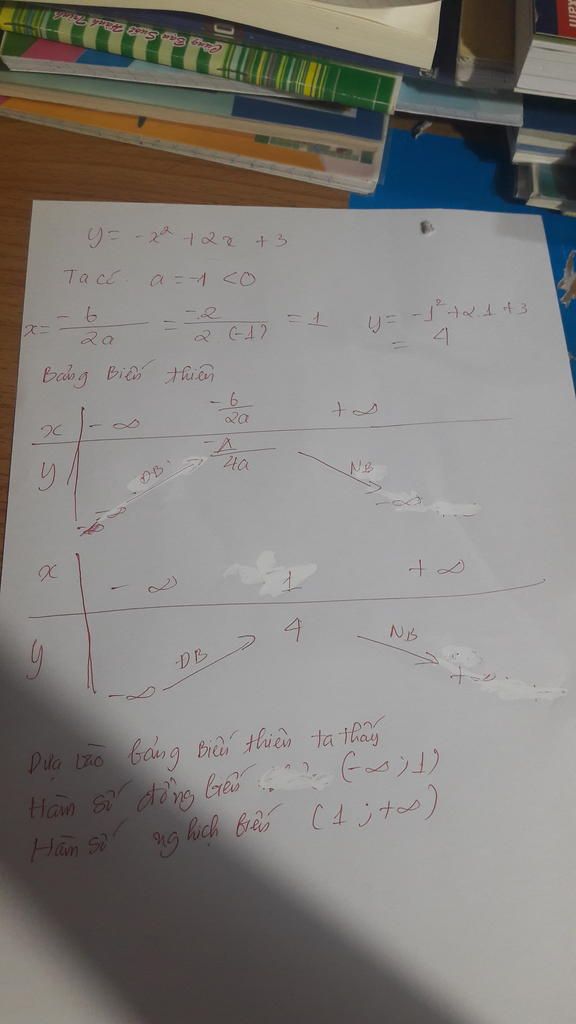 Cùng Bạn Suốt Hành Trình
y = -x² + 2x + 3
Ta có. a = -1 < 0
x = -b/2a = -2/2.(-1) = 1 y = -1² + 2.1 + 3
= 4
Bảng Biến thiên
x -∞ -b/2a +∞
y ĐB -Δ/4a NB
-∞ -∞
x -∞ 1 +∞
y ĐB 4 NB
-∞ +∞
Dựa vào bảng Biến thiên ta thấy
Hàm số đồng biến (-∞; 1)
Hàm số nghịch biến (1; +∞)